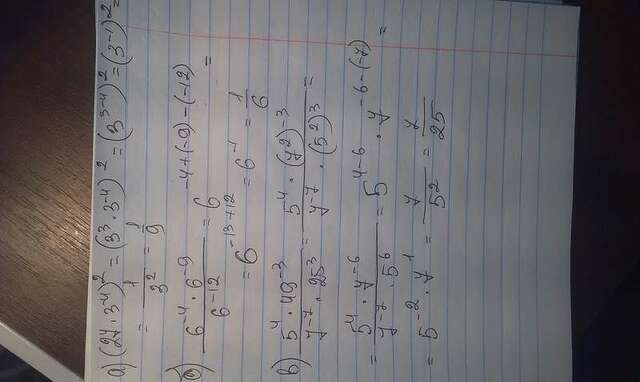 а) (27·3⁻⁴)² = (3³·3⁻⁴)² = (3³⁻⁴)² = (3⁻¹)² =
= 1/3² = 1/9
б) 6⁻⁴·6⁻⁹/6⁻¹² = 6⁻⁴⁺⁽⁻⁹⁾⁻⁽⁻¹²⁾ =
= 6⁻¹³⁺¹² = 6⁻¹ = 1/6
в) 5⁴·49⁻³/7⁻⁷·25³ = 5⁴·(7²)⁻³/7⁻⁷·(5²)³ =
= 5⁴·7⁻⁶/7⁻⁷·5⁶ = 5⁴⁻⁶·7⁻⁶⁻⁽⁻⁷⁾ =
= 5⁻²·7¹ = 7/5² = 7/25